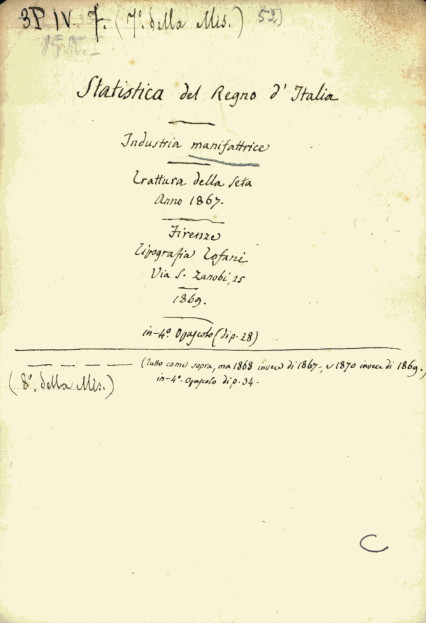 3P IV 7. (7°. della Mis.) 52)
Statistica del Regno d'Italia
Industria manifattrice
Trattura della seta
Anno 1867.
Firenze
Tipografia Tofani
Via S. Zanobi, 25
1869.
in-4° Opuscolo (di p. 28)
(tutto come sopra, ma 1868 invece di 1867, e 1870 invece di 1869.
(8°. della Mis.)
in-4°. Opuscolo di p. 34.
C